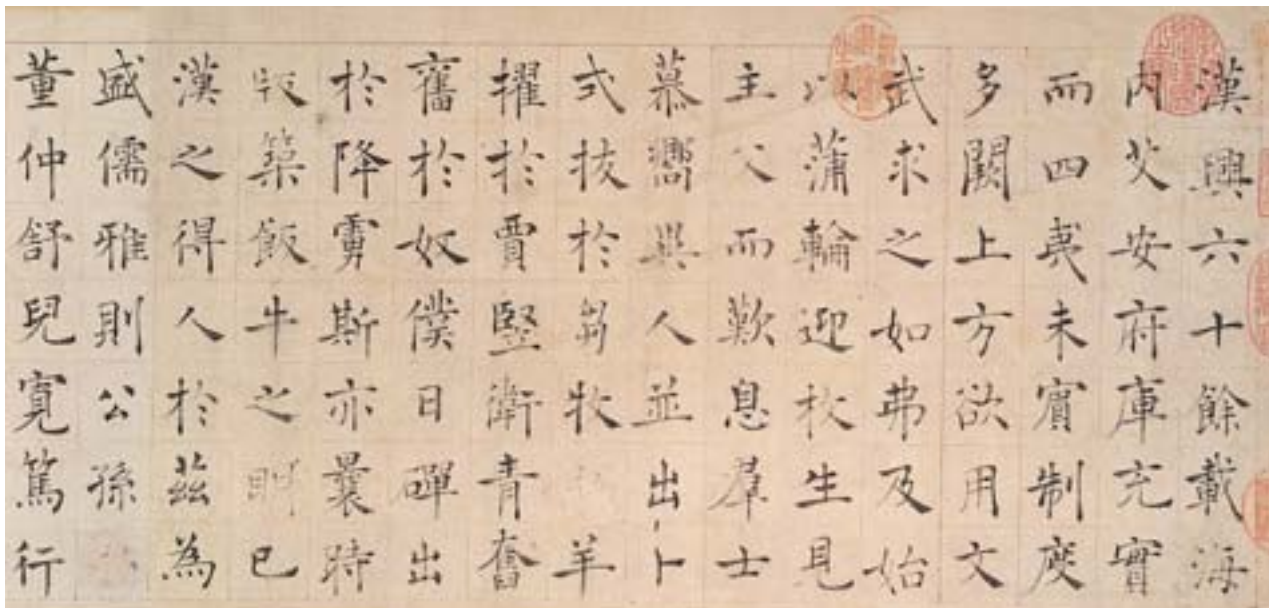 漢興六十餘載海
内艾安府庫充實
而四夷未賓制度
多闕上方欲用文
武求之如弗及始
以蒲輪迎枚生見
主父而歎息羣士
慕嚮異人並出卜
式拔於芻牧羊
擢於賈豎衛青奮
舊於奴僕日磾出
於降虜斯亦曩時
版築飯牛之朋已
漢之得人於茲為
盛儒雅則公孫
董仲舒兒寬篤行